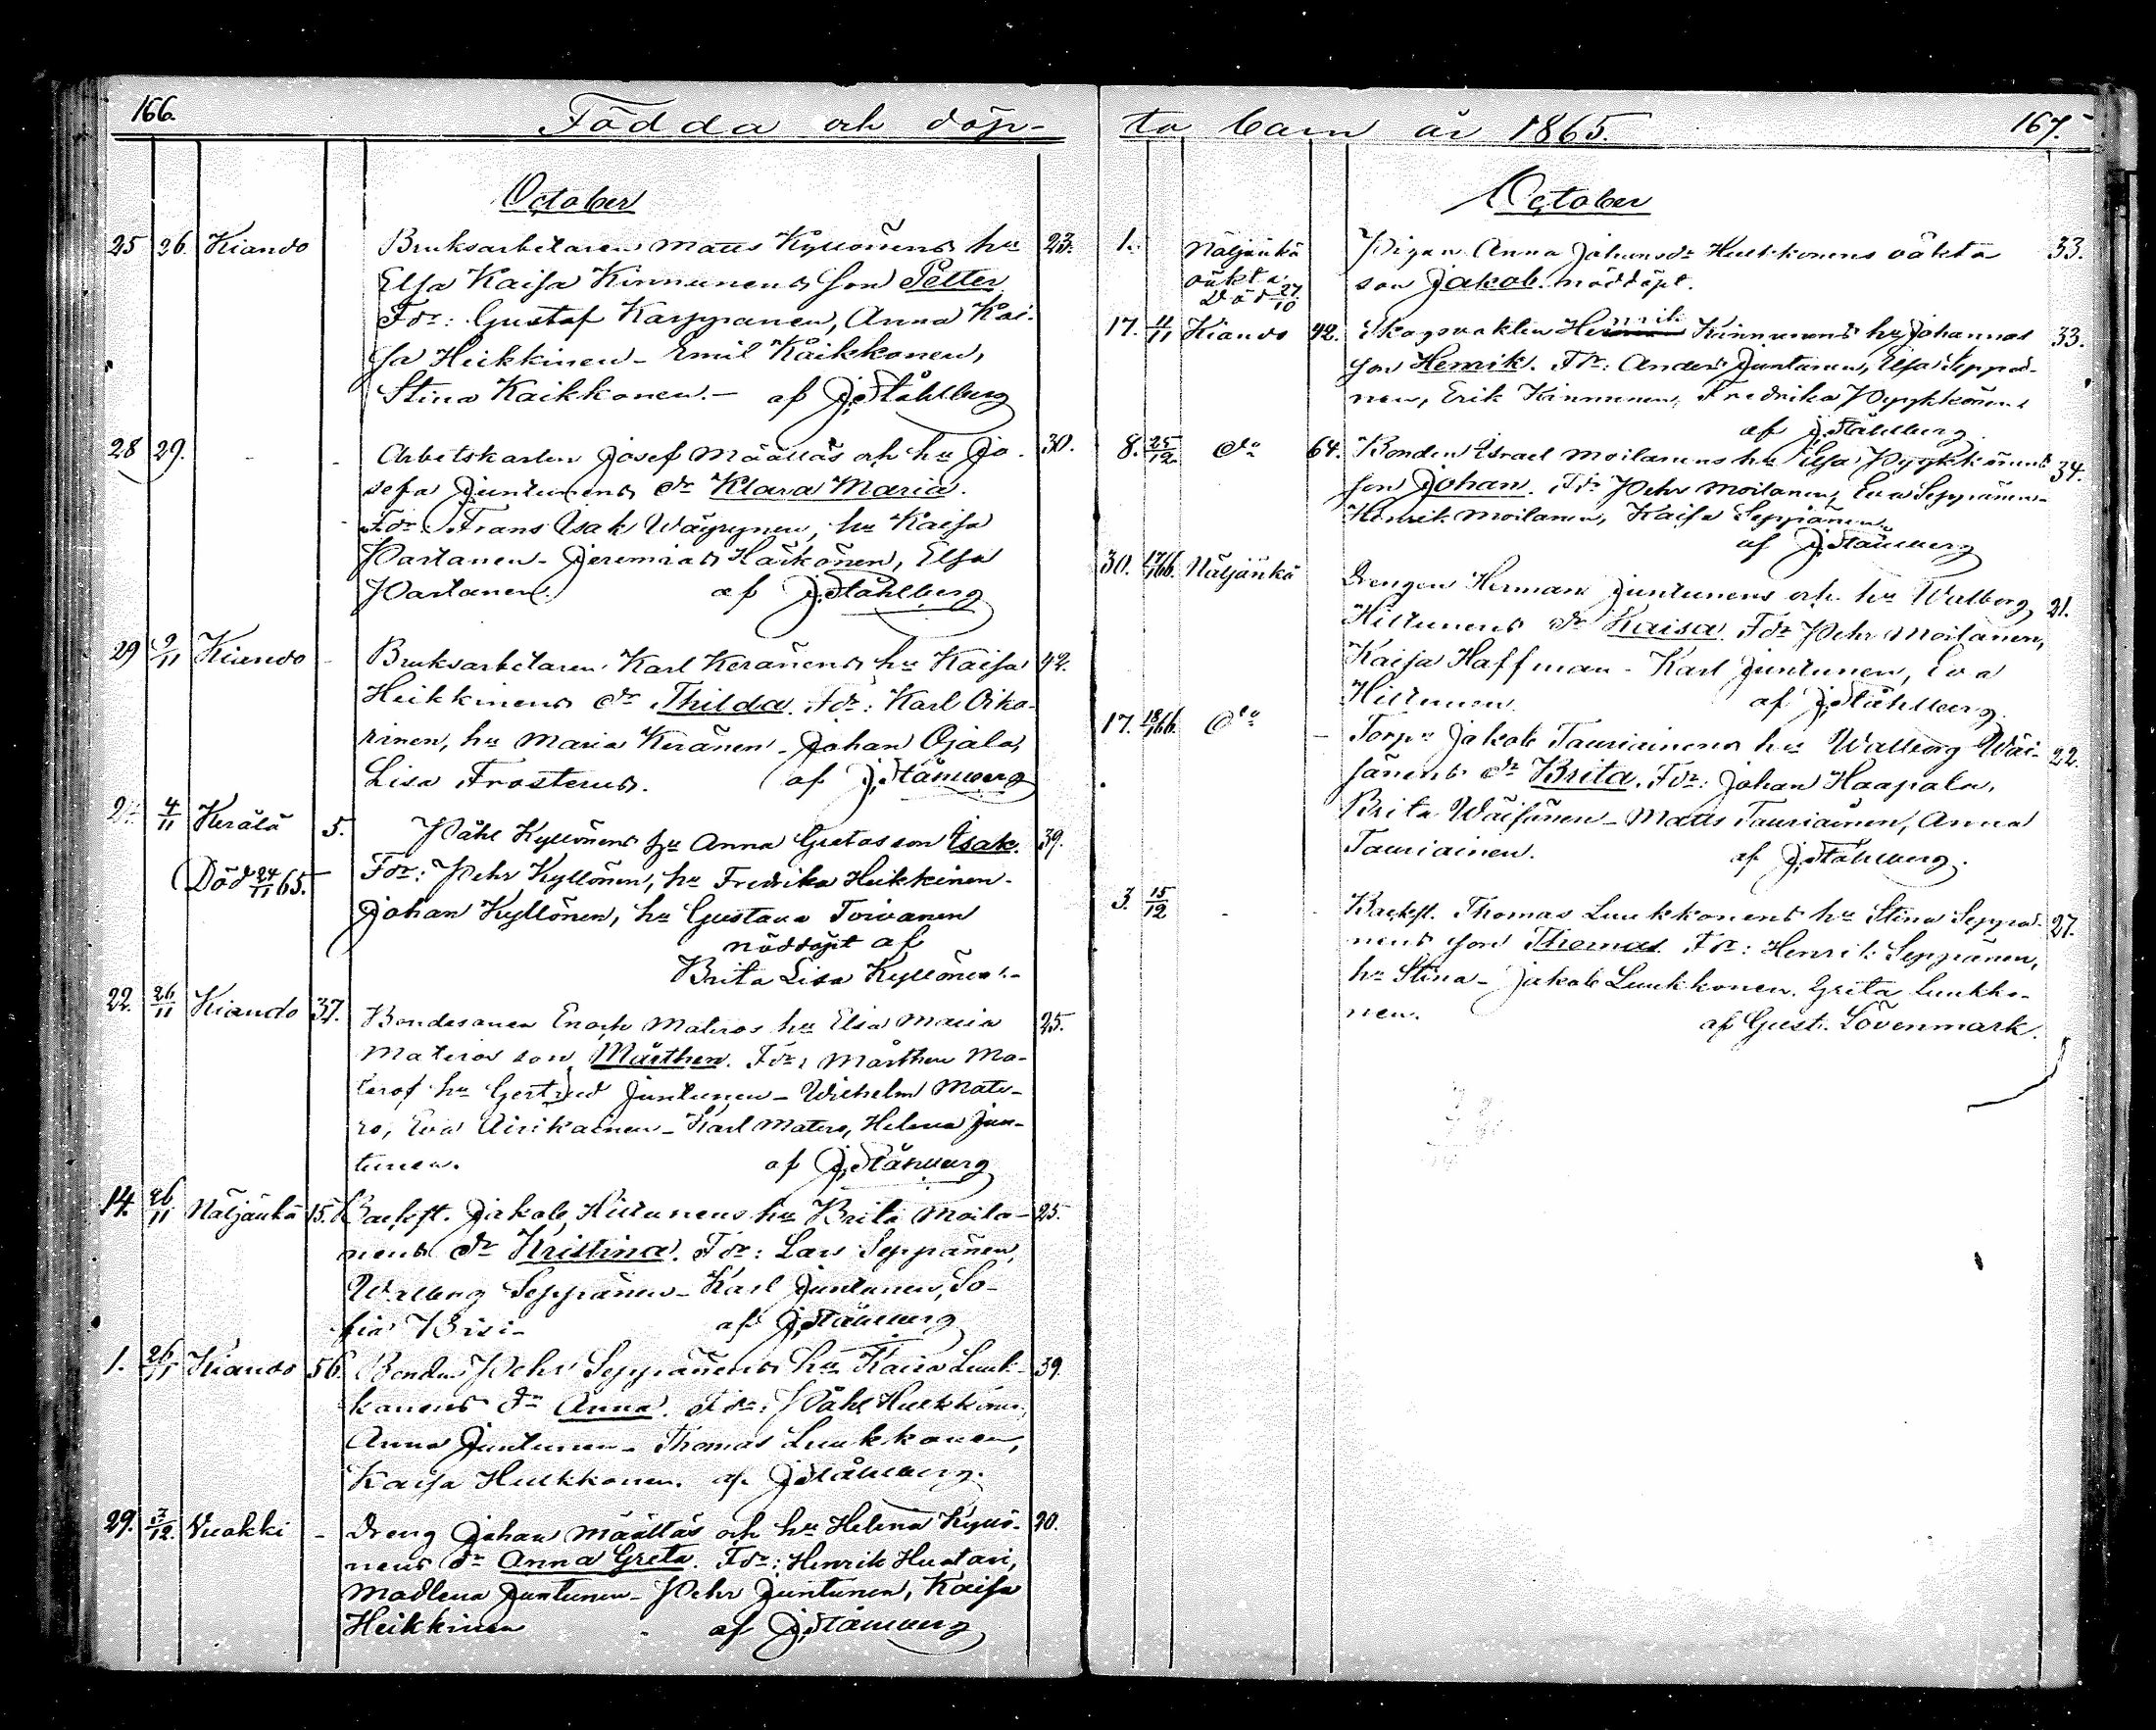 166.
Födda och döp-
October
25 26. Kiando Bruksarbetaren Matts Kyllönens hu 23.
Elsa Kaisa Kinnunens son Petter
Fdr: Gustaf Karppanen, Anna Kai-
sa Heikkinen - Emil Kaikkonen,
Stina Kaikkonen. - af J. Ståhlberg
28 29. - - Arbetskarlen Josef Määttäs och hu Jo- 30.
sefa Juntunens dr Klara Maria.
Fdr: Frans Isak Wäyrynen, hu Kaisa
Partanen - Jeremias Härkönen, Elsa
Partanen. af J. Ståhlberg
29 9/11 Kiando - Bruksarbetaren Karl Keränens hu Kaisa 42.
Heikkinens dr Thilda. Fdr: Karl Oika-
rinen, hu Maria Keränen - Johan Ojala,
Lisa Frosterus. af J. Ståhlberg
4/11 Kerälä 5. Påhl Kyllönens hu Anna Gretas son Isak. 39.
(Död 24/11 65. Fdr: Pehr Kyllönen, hu Fredrika Heikkinen -
Johan Kyllönen, hu Gustava Toivanen
nöddöpt af
Brita Lisa Kyllönen. -
22. 26/11 Kiando 37. Bondesonen Enoch Materos hu Elsa Maria 25.
Materos son Mårthen. Fdr: Mårthen Ma-
terof hu Gertrud Juntunen - Wilhelm Mate-
ro, Eva Airikainen - Karl Matero, Helena Jun-
tunen. af J. Ståhlberg
14. 26/11 Näljänkä 15. Backst. Jakob Hiltunens hu Brita Moila- 25.
nens dr Kristina. Fdr: Lars Seppänen,
Walborg Seppänen - Karl Juntunen, So-
fia Bisi - af J. Ståhlberg
1. 26/11 Kiando 56. Bonden Pehr Seppänens hu Kaisa Luuk- 39.
konens dr Anna. Fdr: Påhl Hulkkonen,
Anna Juntunen - Thomas Luukkonen,
Kaisa Hulkkonen. af J. Ståhlberg.
29. /12. Vuokki - Dreng Johan Määttäs och hu Helena Kyllö- 20.
nens dr Anna Greta. Fdr: Henrik Huotari,
Madlena Juntunen - Pehr Juntunen, Kaisa
Heikkinen af J. Ståhlberg
167.
ta barn år 1865.
October
1. Näljänkä Pigan Anna Johansdr Hulkkonens oäkta 33.
oäkta. son Jakob. nöddöpt.
Död 27/10
17. 11/11 Kiando 42. Skogsvakten Henrik Kinnunens hu Johannas 33.
son Henrik. Fdr: Anders Juntunen, Elsa Seppä-
nen, Erik Kinnunen, Fredrika Pyykkönen
af J. Ståhlberg
8. 25/12. do 64. Bonden Israel Moilanens hu Elsa Pyykkönens 34.
son Johan. Fdr Pehr Moilanen, Eva Seppänen -
Henrik Moilanen, Kaisa Seppänen
af J. Ståhlberg
30. 66. Näljänkä Drengen Herman Juntunens och hu Walborg 21.
Hiltunens dr Kaisa. Fdr Pehr Moilanen,
Kaisa Haffman - Karl Juntunen, Eva
Hiltunen. af J. Ståhlberg.
17. 66. do - Torpn Jakob Tauriainens hu Walborg Wäi- 22.
sänens dr Brita. Fdr: Johan Haapala,
Brita Wäisänen - Matts Tauriainen, Anna
Tauriainen. af J. Ståhlberg.
3. 15/12 - - Backst. Thomas Luukkonens hu Stina Seppä- 27.
nens son Thomas. Fdr: Henrik Seppänen,
hu Stina - Jakob Luukkonen. Greta Luukko-
nen. af Gust. Lövenmark.